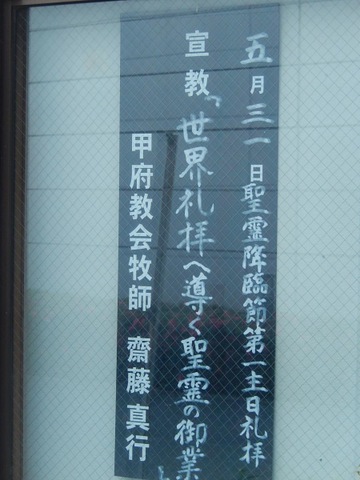 五月三一日聖霊降臨節第一主日礼拝
宣教「世界礼拝へ導く聖霊の御業」
甲府教会牧師 齋藤真行